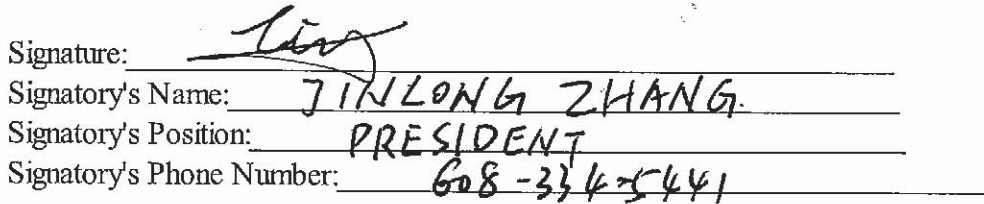 Signature:
Signatory's Name: JINLONG ZHANG.
Signatory's Position: PRESIDENT
Signatory's Phone Number: 608-334-5441